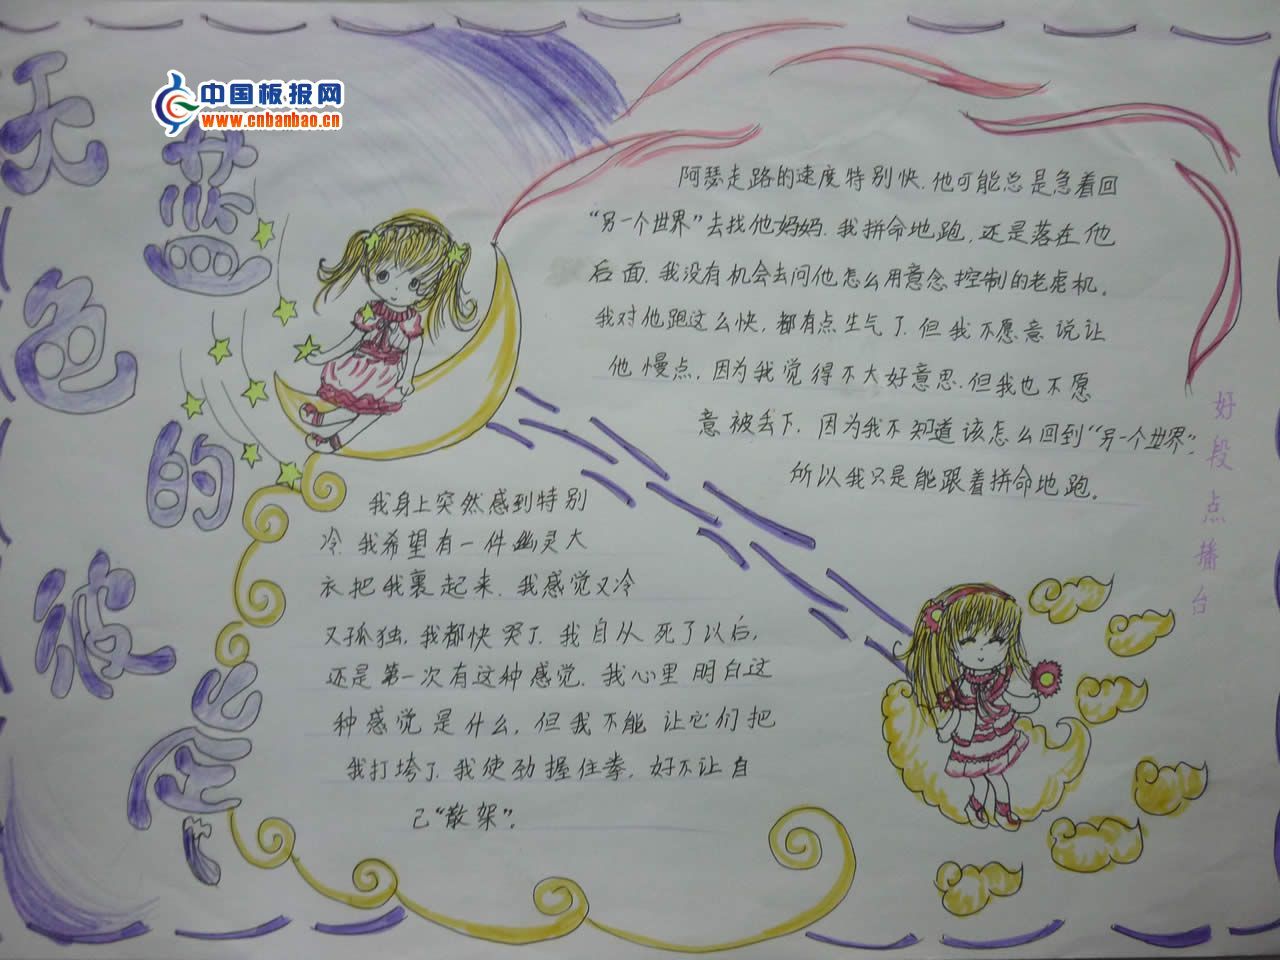 中国板报网
www.cnbanbao.cn
天蓝色的彼岸
阿瑟走路的速度特别快.他可能总是急着回
“另一个世界”去找他妈妈.我拼命地跑,还是落在他
后面.我没有机会去问他怎么用意念控制的老虎机。
我对他跑这么快,都有点生气了.但我不愿意说让
他慢点,因为我觉得不大好意思.但我也不愿
意被丢下,因为我不知道该怎么回到“另一个世界”.
所以我只是能跟着拼命地跑。
好段点播台
我身上突然感到特别
冷.我希望有一件幽灵大
衣把我裹起来.我感觉又冷
又孤独,我都快哭了.我自从死了以后,
还是第一次有这种感觉.我心里明白这
种感觉是什么,但我不能让它们把
我打垮了.我使劲握住拳,好不让自
己“散架”.